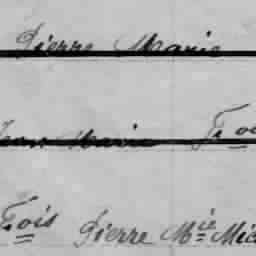 Pierre Marie
Jean Marie F. o
F.ois Pierre M.ie Mic